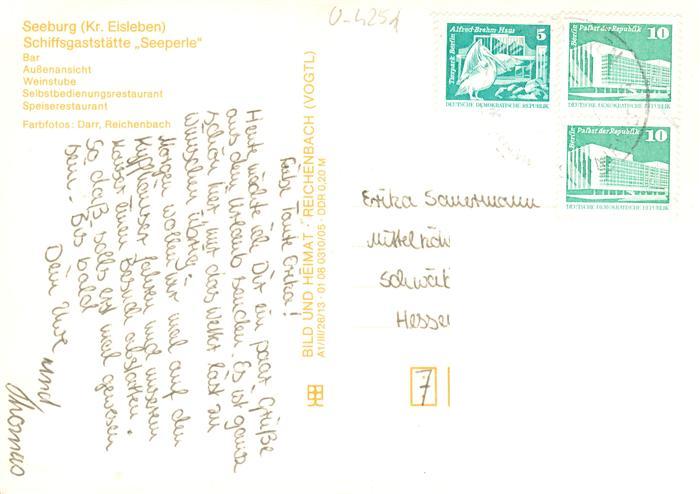 Seeburg (Kr. Eisleben)
Schiffsgaststätte „Seeperle"
Bar
Außenansicht
Weinstube
Selbstbedienungsrestaurant
Speiserestaurant
Farbfotos: Darr, Reichenbach
Liebe Tante Erika!
Heute möchte ich Dir ein paar Grüße
aus dem Urlaub senden. Es ist ganz
schön hier nur das Wetter läßt zu
wünschen übrig.
Morgen wollen wir mal auf den
Kyffhäuser fahren und unserem
Kaiser einen Besuch abstatten.
So, daß solls erst mal gewesen
sein. Bis bald
Dein Uwe und
Thomas
BILD UND HEIMAT · REICHENBACH (VOGTL)
A1/III/26/13 · 01 08 0310/05 · DDR 0,20 M
V-425d
Tierpark Berlin
Alfred-Brehm-Haus
5
DEUTSCHE DEMOKRATISCHE REPUBLIK
Berlin
Palast der Republik
10
DEUTSCHE DEMOKRATISCHE REPUBLIK
Berlin
Palast der Republik
10
DEUTSCHE DEMOKRATISCHE REPUBLIK
Erika Sauermann
Mittel
Schw
Hesse
7